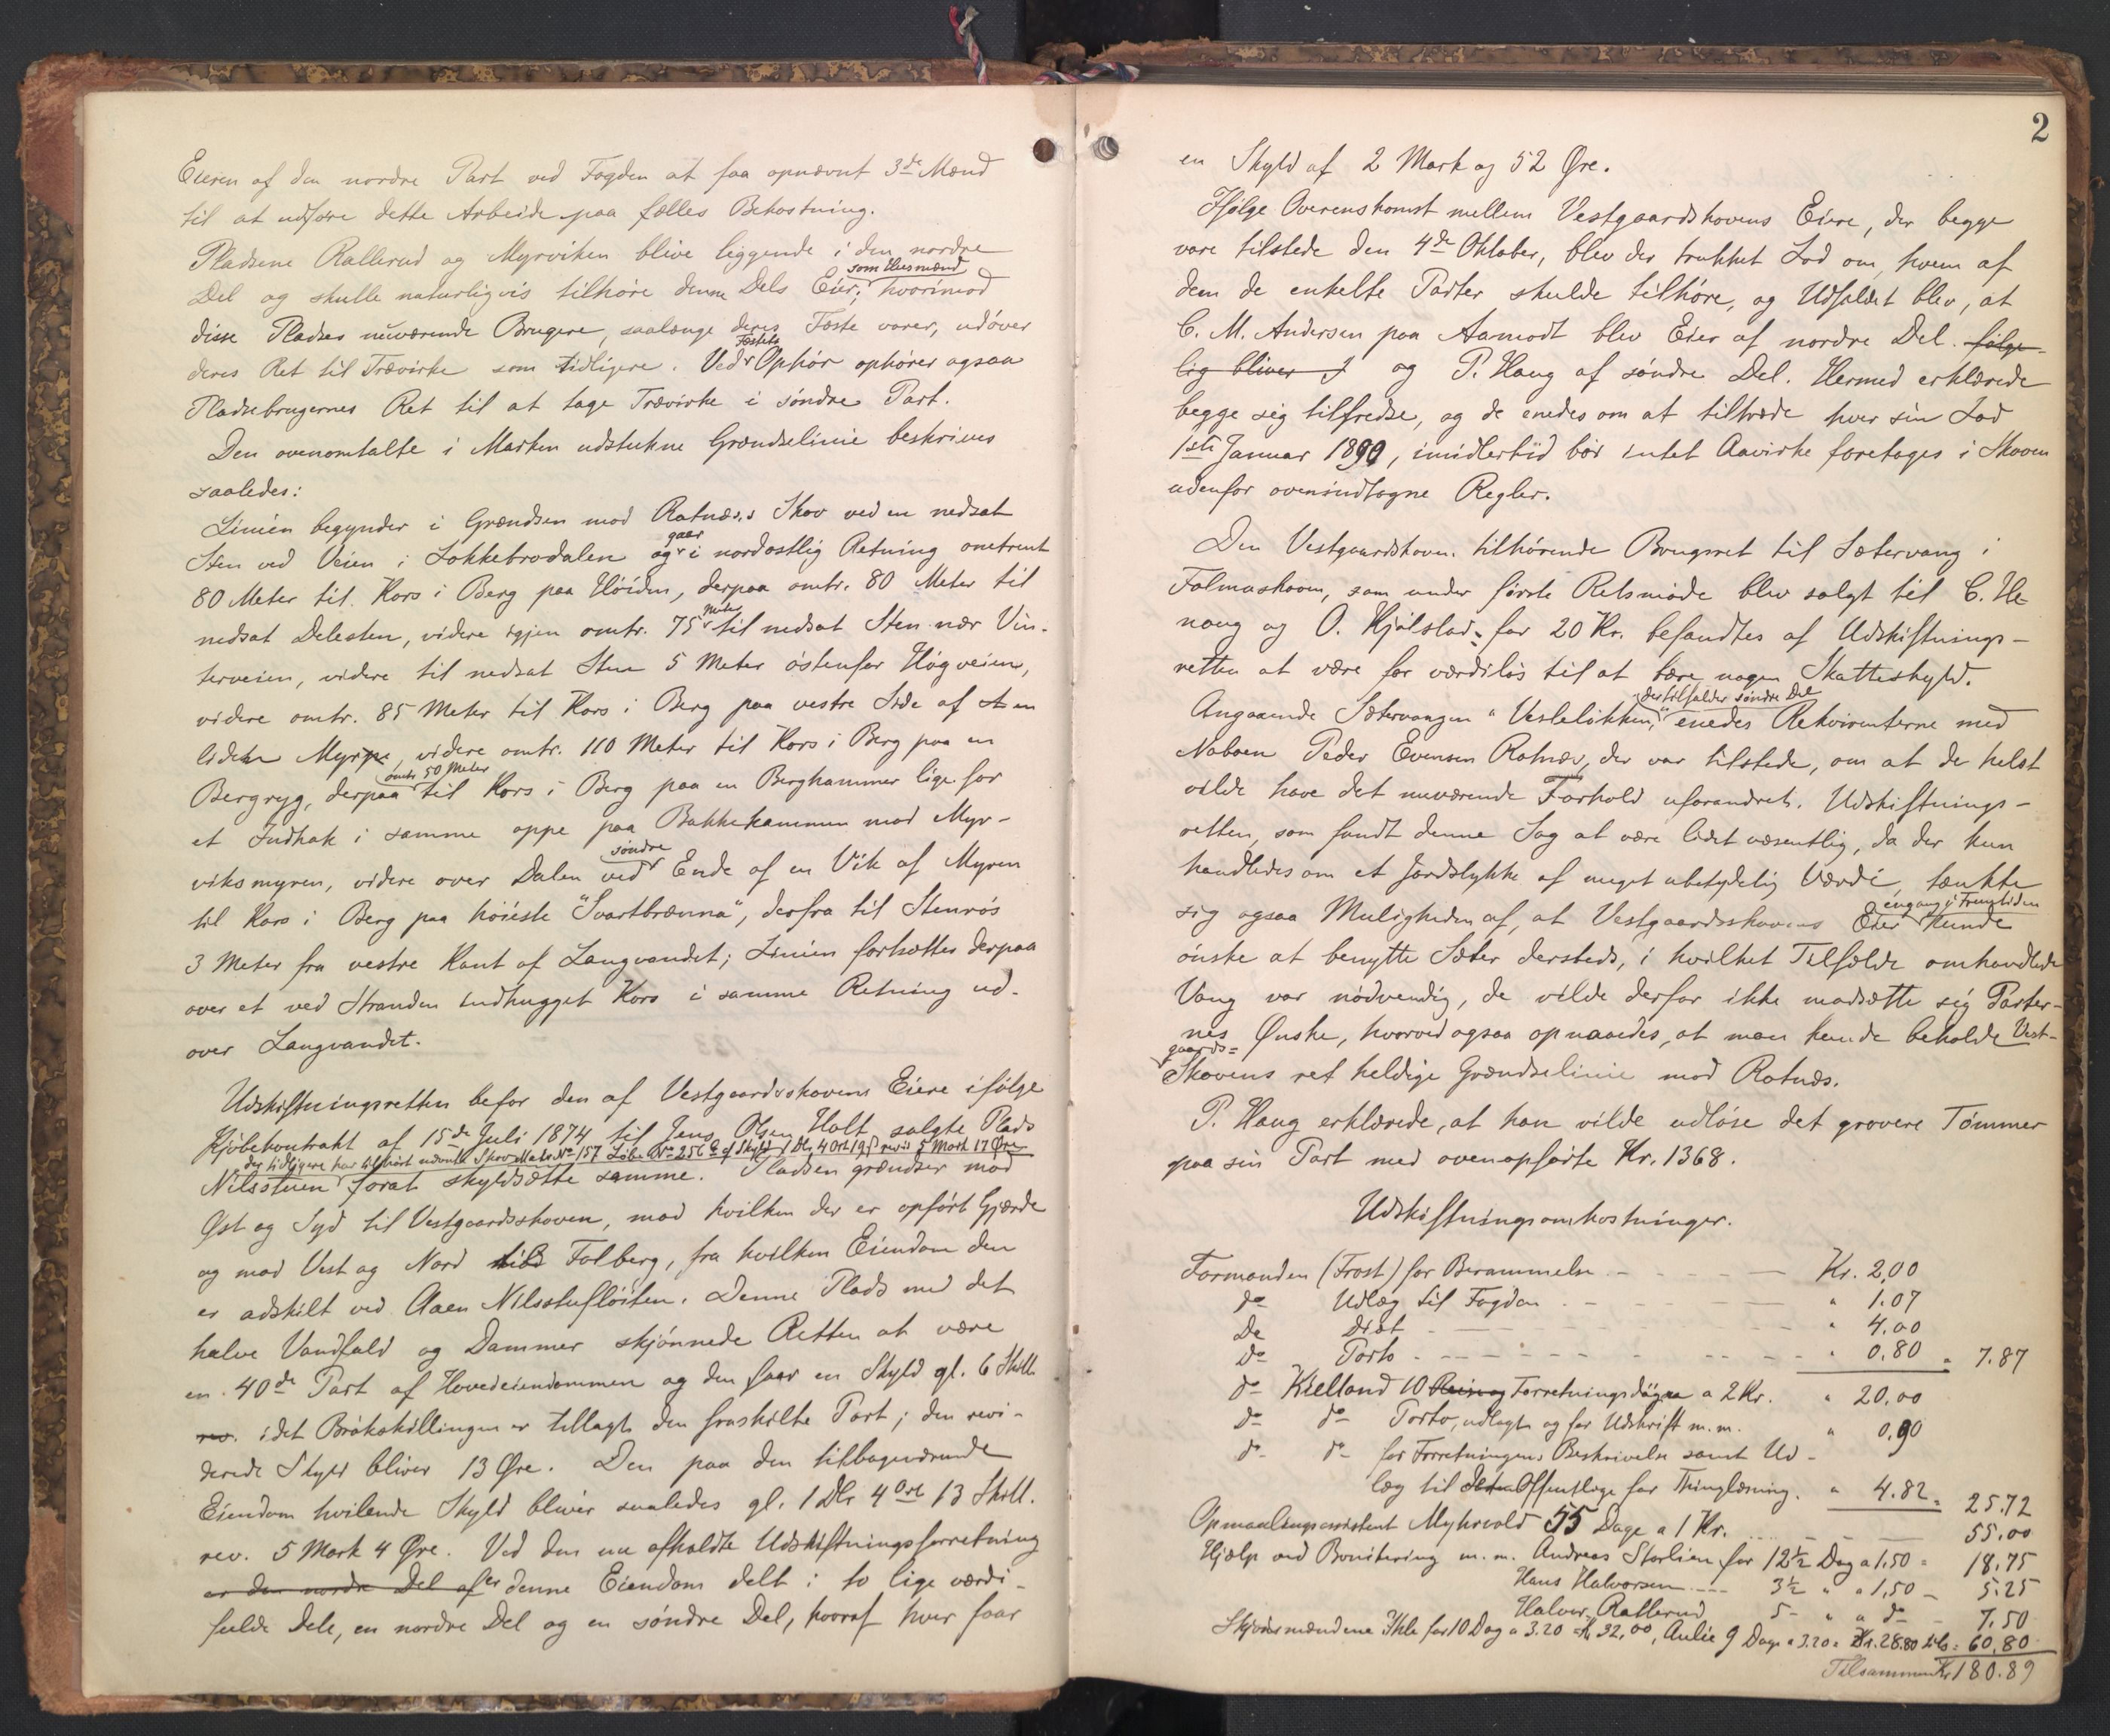 Eieren af den nordre Part ved Fogden at faa opnævnt 3de Mænd
til at udføre dette Arbeide paa fælles Bekostning.
Pladsene Rallerud og Myrviken blive liggende i den nordre
som Husmænd
Del og skulle naturligvis tilhøre denne Dels Eier; hvorimod
disse Pladses nuværende Brugere, saalænge deres Fæste varer, udøver
Fæstets
deres Ret til Trævirke som tidligere. Ved Ophør ophører agsaa
Pladsebrugernes Ret til at tage Trævirke i søndre Part.
Den ovenomtalte i Marken udstukne Grændselinie beskrives
saaledes:
Linien begynder i Grændsen mod Ratnæs's Skov ved en nedsat
gaar
Sten ved Veien i Lokkebrodalen og i nordostlig Retning omtrent
80 Meter til Kors i Berg paa Høiden, derpaa omtr. 80 Meter til
Meter
nedsat Delesten, videre igjen omtr. 75 til nedsat Sten nær Vin-
terveien, videre til nedsat Sten 5 Meter østenfor Høgveien,
videre omtr. 85 Meter til Kors i Berg paa vestre Side af en
liden Myr, videre omtr. 110 Meter til Kors i Berg paa en
omtr 50 Meter
Bergryg, derpaa til Kors i Berg paa en Berghammer lige for
et Indhak i samme oppe paa Bakkekammen mod Myr-
søndre
viksmyren, videre over Dalen ved Ende af en Vik af Myren
til Kors i Berg paa høieste "Svartbrænna", derfra til Stenrøs
3 Meter fra vestre Kant af Langvandet; Linien fortsættes derpaa
over et ved Stranden indhugget Kors i samme Retning ud-
over Langvandet.
Udskiftningsretten befor den af Vestgaardsskovens Eiere ifølge
Kjøbekontrakt af 15de Juli 1874 til Jens Olsen Holt solgte Plads
der tidligere har tilhørt Skov Matr No 157 Løbe No 256 a af Skyld 1 Dlr 4 Ort 19 ß revis 5 Mark 17 Øre
Nilsstuen forat skyldsætte samme. Pladsen grændser mod
Øst og Syd til Vestgaardsskoven, mod hvilken der er opført Gjærde
og mod Vest og Nord til Folberg, fra hvilken Eiendom den
er adskilt ved Aaen Nilsstufløiten. Denne Plads med det
halve Vandfald og Dammer skjønnede Retten at være
en 40de Part af Hovedeiendommen og den faar en Skyld gl. 6 Skill
rev. idet Brøkskillingen er tillagt den fraskilte Part; den revi-
derede Skyld bliver 13 Øre. Den paa den tilbageværende
Eiendom hvilende Skyld bliver saaledes gl. 1 Dlr 4 Ort 13 Skill.
rev. 5 Mark 4 Øre. Ved den nu afholdte Udskiftningsforretning
er den nordre Del af er denne Eiendom delt i to lige værdi-
fulde Dele, en nordre Del og en søndre Del, hvoraf hver faar
2
en Skyld af 2 Mark og 52 Øre.
Ifølge Overenskomst mellem Vestgaardskovens Eiere, der begge
vare tilstede den 4de Oktober, blev der trukket Lod om, hvem af
dem de enkelte Parter skulde tilhøre, og Udfaldet blev, at
C. M. Andersen paa Aamodt blev Eier af nordre Del. følge-
lig bliver J og P. Haug af søndre Del. Hermed erklærede
begge sig tilfredse, og de enedes om at tiltræde hver sin Lod
1ste Januar 1890, imidlertid bør intet Aavirke foretages i Skoven
udenfor ovenindtagne Regler.
Den Vestgaardskoven tilhørende Brugsret til Sætervang i
Folmaskoven, som under første Retsmøde blev solgt til C. He-
naug og O. Kjølstad for 20 Kr. befandtes af Udskiftnings-
retten at være for værdiløs til at bære nogen Skatteskyld.
der tilfalder søndre Del
Angaaende Sætervangen "Vesleløkken," enedes Rekvirenterne med
Naboen Peder Evensen Ratnæs, der var tilstede, om at de helst
vilde have det nuværende Forhold uforandret. Udskiftnings-
retten, som fandt denne Sag at være lidet væsentlig, da der kun
handledes om et Jordstykke af meget ubetydelig Værdi, tænkte
engang i Fremtiden
sig ogsaa Muligheden af, at Vestgaardsskovens Eier kunde
ønske at benytte Sæter dersteds, i hvilket Tilfælde omhandlede
Vang var nødvendig, de vilde derfor ikke modsætte sig Parter-
nes Ønske, hvorved ogsaa opnaaedes, at man kunde beholde Vest-
gaards=
Skovens ret heldige Grændselinie mod Ratnæs.
P. Haug erklærede, at han vilde udløse det grovere Tømmer
paa sin Part med ovenopførte Kr. 1368.
Udskiftningsomkostninger.
Formanden (Frost) for Berammelse - - - Kr. 2,00
do Udlæg til Fogden - - - " 1.07
Do Diæt - - - " 4.00
Do Porto - - - " 0.80 = 7.87
do Kielland 10 Forretningsdøgn a 2 Kr. " 20,00
do do Porto, udlagt og for Udskrift m.m. " 0.90
do do for Forretningens Beskrivelse samt Ud-
læg til det Offentlige for Thinglæsning. " 4.82 = 25.72
Opmaalingsassistent Myhrvold 55 Dage a 1 Kr. - - - 55.00
Hjælp ved Bonitering m. m. Andreas Storlien for 12½ Dag a 1.50 = 18.75
Hans Halvorsen - - 3½ " a 1,50 - 5.25
Halvor Rallerud 5 - " a do - 7.50
Skjønsmændene Ihle for 10 Dag a 3.20 = Kr 32,00, Aulie 9 Dage a 3.20 = Kr. 28.80 tils = 60.80
Tilsammen Kr 180.89